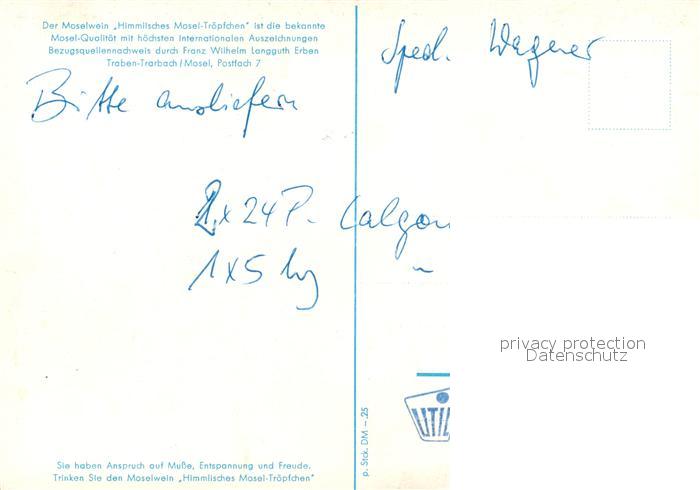 Der Moselwein „Himmlisches Mosel-Tröpfchen" ist die bekannte
Mosel-Qualität mit höchsten internationalen Auszeichnungen
Bezugsquellennachweis durch Franz Wilhelm Langguth Erben
Traben-Trarbach/Mosel, Postfach 7
Bitte ausliefern
x 24 P. Calgon
1 x 5 kg "
Sie haben Anspruch auf Muße, Entspannung und Freude.
Trinken Sie den Moselwein „Himmlisches Mosel-Tröpfchen"
p. Stck. DM –.25
Sped. Wegener
privacy protection
Datenschutz
UTIL